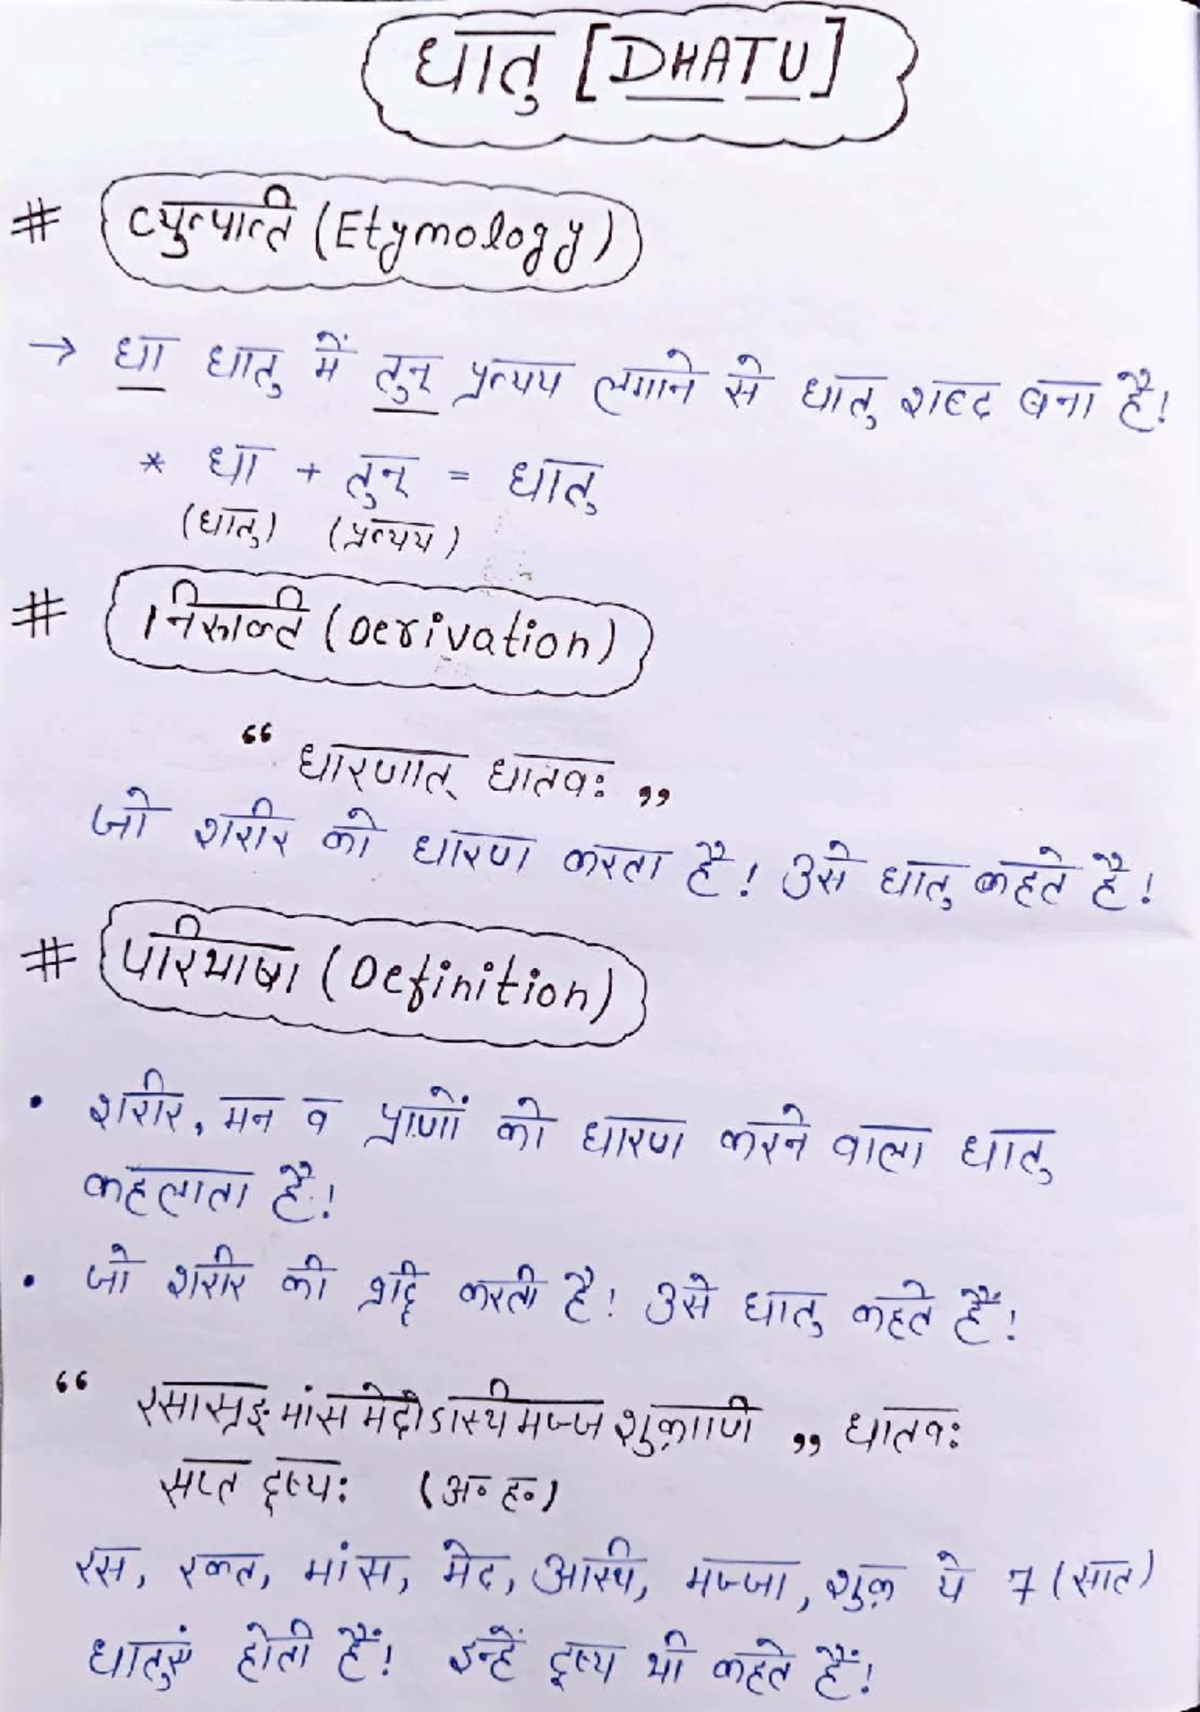 धातु [DHATU]
# व्युत्पत्ति (Etymology)
→ धा धातु में तुन् प्रत्यय लगाने से धातु शब्द बना है!
* धा + तुन् = धातु
(धातु) (प्रत्यय)
# निरूक्ति (Derivation)
“ धारणात् धातवः ”
जो शरीर को धारण करता है! उसे धातु कहते है!
# परिभाषा (Definition)
• शरीर, मन व प्राणों को धारण करने वाला धातु
कहलाता है!
• जो शरीर की करती है! उसे धातु कहते हैं!
“ रसासृङ्मांसमेदोऽस्थिमज्जशुक्राणि ” धातवः
सप्त दूष्यः (अ॰ ह॰)
रस, रक्त, मांस, मेद, अस्थि, मज्जा, शुक्र ये 7 (सात)
धातुएं होती हैं! इन्हें दूष्य भी कहते हैं!